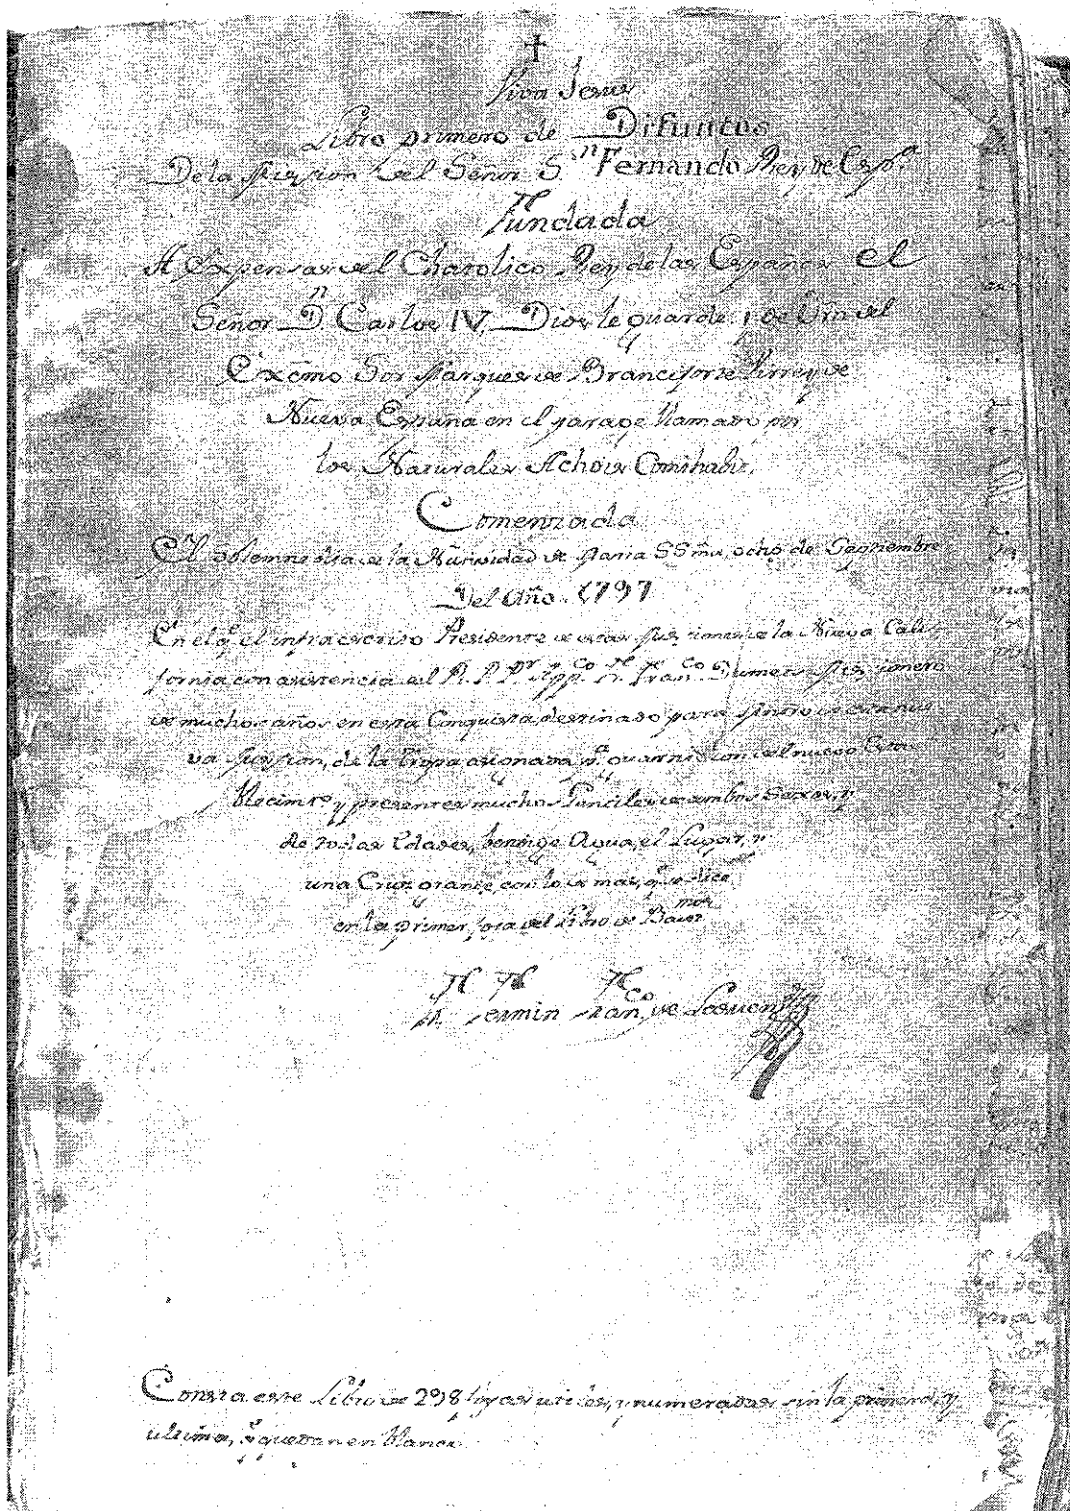 Viva Jesus
Libro primero de Difuntos
De la Mission del Señor Sn Fernando Rey de Espª
Fundada
A Expensas del Chatolico Rey de las Españas el
Señor Dn Carlos IV, Dios le guarde, y de Orn del
Excmo Sor Marques de Branciforte Virrey de
Nueva España en el parage llamado por
los Naturales Achois Comihabit,
Comenzada
El solemne dia de la Natividad de Maria SSma, ocho de Septiembre
Del Año 1797
En el q.e el infraescrito Presidente de estas Missiones de la Nueva Cali-
fornia con asistencia del R. P. Pr. Appco Fr. Franco Dumetz Missionero
de muchos años en esta Conquista, destinado para Mintro de esta nue
va Mission, de la Tropa asignada pª guarnicion del nuevo Esta
blecimto, y presentes muchos Gentiles de ambos Sexos, y
de todas Edades, bendige Agua, el Lugar, y
una Cruz grande, con lo demas, q.e se dice
en la primer foja del Libro de Bautmos
Fr. Fermin Franco de Lasuen
Consta este Libro de 298 fojas utiles, y numeradas sin la primera, y
ultima, q.e quedan en blanco